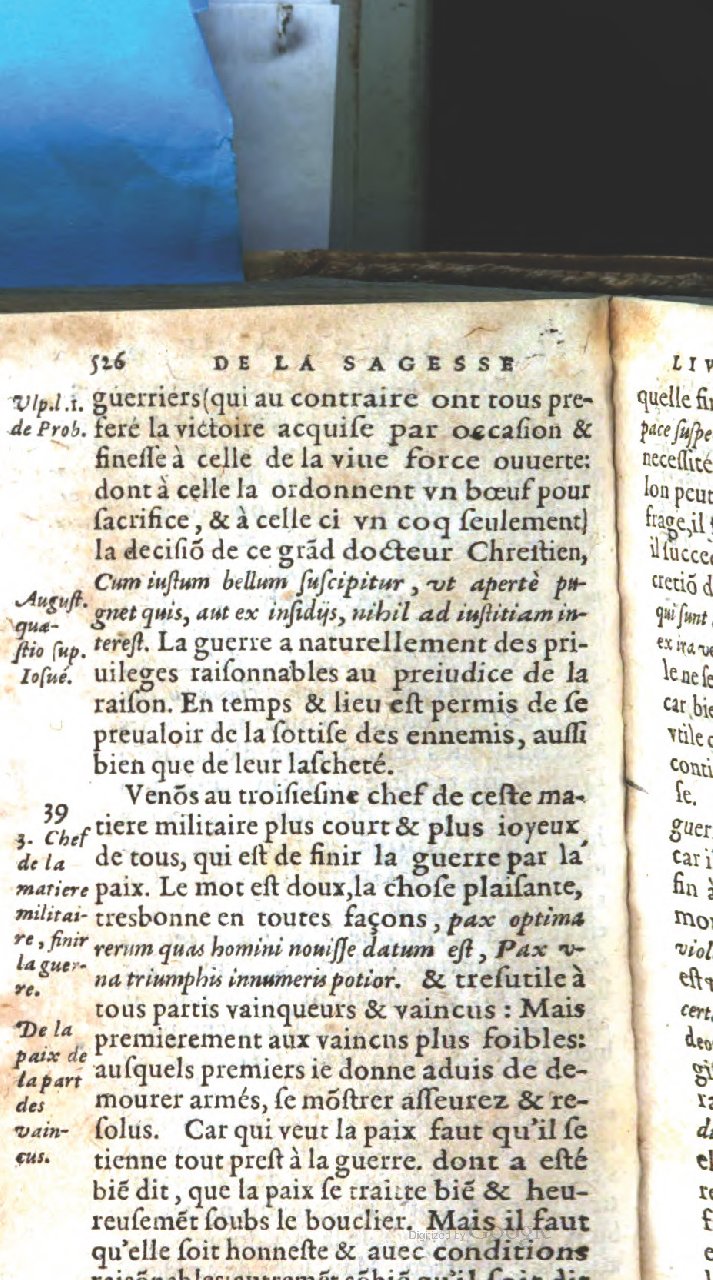 526 DE LA SAGESSE
Vlp.l.1.
de Prob.
guerriers(qui au contraire ont tous pre-
feré la victoire acquiſe par occaſion &
fineſſe à celle de la viue force ouuerte:
dont à celle la ordonnent vn bœuf pour
ſacrifice, & à celle ci vn coq ſeulement)
la deciſiõ de ce grãd docteur Chreſtien,
Cum iuſtum bellum ſuſcipitur, vt apertè pu-
gnet quis, aut ex inſidijs, nihil ad iuſtitiam in-
tereſt. La guerre a naturellement des pri-
uileges raiſonnables au preiudice de la
raiſon. En temps & lieu eſt permis de ſe
preualoir de la ſottiſe des ennemis, auſſi
bien que de leur laſcheté.
Auguſt.
quæ-
ſtio ſup.
Ioſué.
Venõs au troiſieſme chef de ceſte ma-
tiere militaire plus court & plus ioyeux
de tous, qui eſt de finir la guerre par la
paix. Le mot eſt doux, la choſe plaiſante,
tresbonne en toutes façons, pax optima
rerum quas homini nouiſſe datum eſt, Pax v-
na triumphis innumeris potior. & treſutile à
tous partis vainqueurs & vaincus : Mais
premierement aux vaincus plus foibles:
auſquels premiers ie donne aduis de de-
mourer armés, ſe mõſtrer aſſeurez & re-
ſolus. Car qui veut la paix faut qu'il ſe
tienne tout preſt à la guerre. dont a eſté
biẽ dit, que la paix ſe traitte biẽ & heu-
reuſemẽt ſoubs le bouclier. Mais il faut
qu'elle ſoit honneſte & auec conditions
39
3. Chef
de la
matiere
militai-
re, finir
la guer-
re.
De la
paix de
la part
des
vain-
cus.
LIV
quelle fin
pace ſuſpe
neceſſité
lon peut
frage, il
il ſucce
cretiõ d
qui ſunt
le ne ſe
car bie
vtile
conti
ſe.
guer
car i
fin à
mo
viol
eſt
cert
Digitized by Google